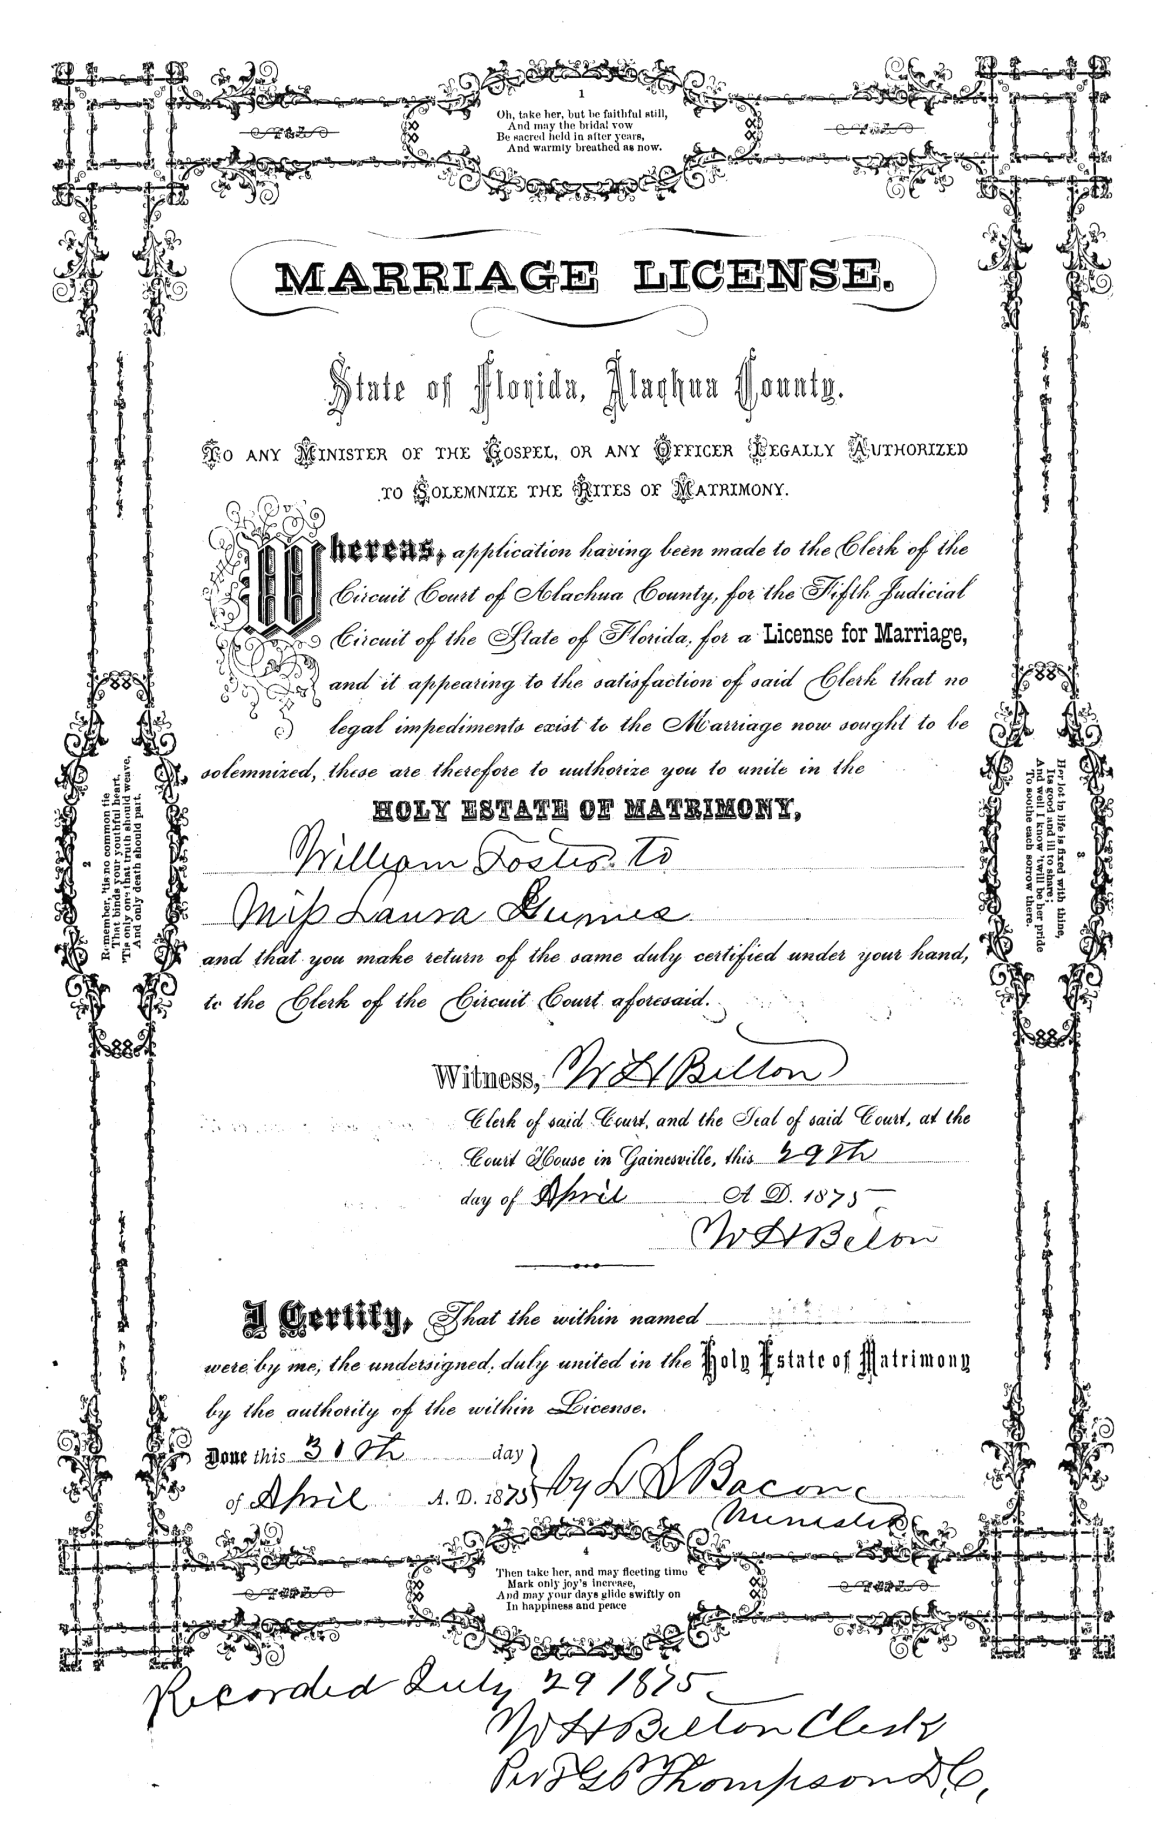 1
Oh, take her, but be faithful still,
And may the bridal vow
Be sacred held in after years,
And warmly breathed as now.
MARRIAGE LICENSE.
State of Florida, Alachua County.
TO ANY MINISTER OF THE GOSPEL, OR ANY OFFICER LEGALLY AUTHORIZED
TO SOLEMNIZE THE RITES OF MATRIMONY.
Whereas, application having been made to the Clerk of the
Circuit Court of Alachua County, for the Fifth Judicial
Circuit of the State of Florida, for a License for Marriage,
and it appearing to the satisfaction of said Clerk that no
legal impediments exist to the Marriage now sought to be
solemnized, these are therefore to authorize you to unite in the
HOLY ESTATE OF MATRIMONY,
William Foster to
Miss Laura
and that you make return of the same duly certified under your hand,
to the Clerk of the Circuit Court aforesaid.
Witness, W H Belton
Clerk of said Court, and the Seal of said Court, at the
Court House in Gainesville, this 29th
day of April A. D. 1875
W H Belton
I Certify, That the within named
were by me, the undersigned, duly united in the Holy Estate of Matrimony
by the authority of the within License.
Done this 30th day
of April A. D. 1875 by L S Bacon
Minister
2
Remember, 'tis no common tie
That binds your youthful heart,
'Tis only one that truth should weave,
And only death should part.
3
Her lot in life is fixed with thine,
Its good and ill to share;
And well I know 'twill be her pride
To soothe each sorrow there.
4
Then take her, and may fleeting time
Mark only joy's increase,
And may your days glide swiftly on
In happiness and peace
Recorded July 29 1875
W H Belton Clerk
Per F G P Thompson D.C.